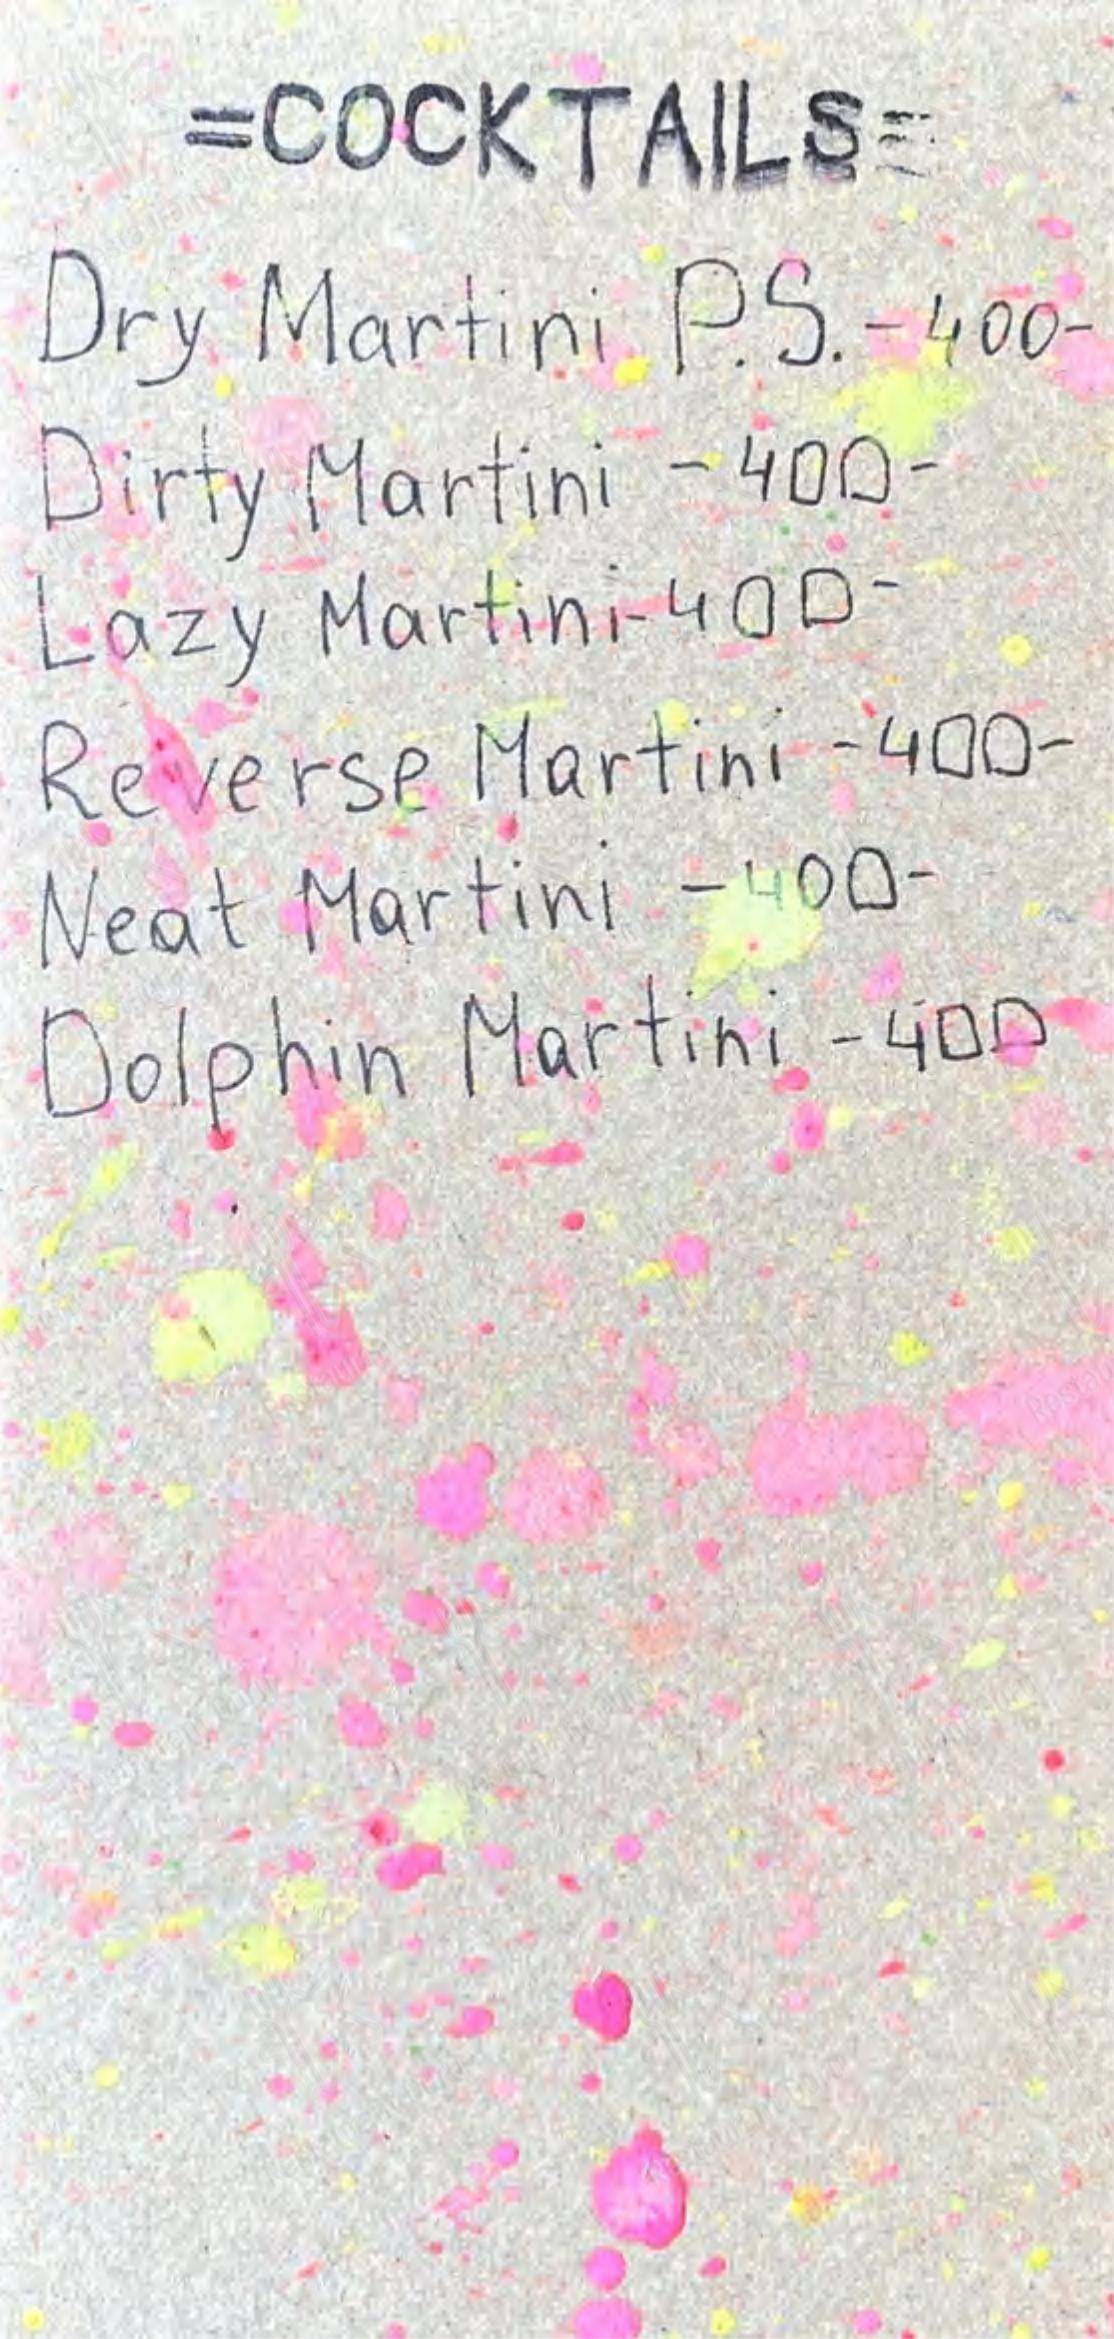 =COCKTAILS=
Dry Martini P.S. -400-
Dirty Martini -400-
Lazy Martini-400-
Reverse Martini -400-
Neat Martini -400-
Dolphin Martini -400